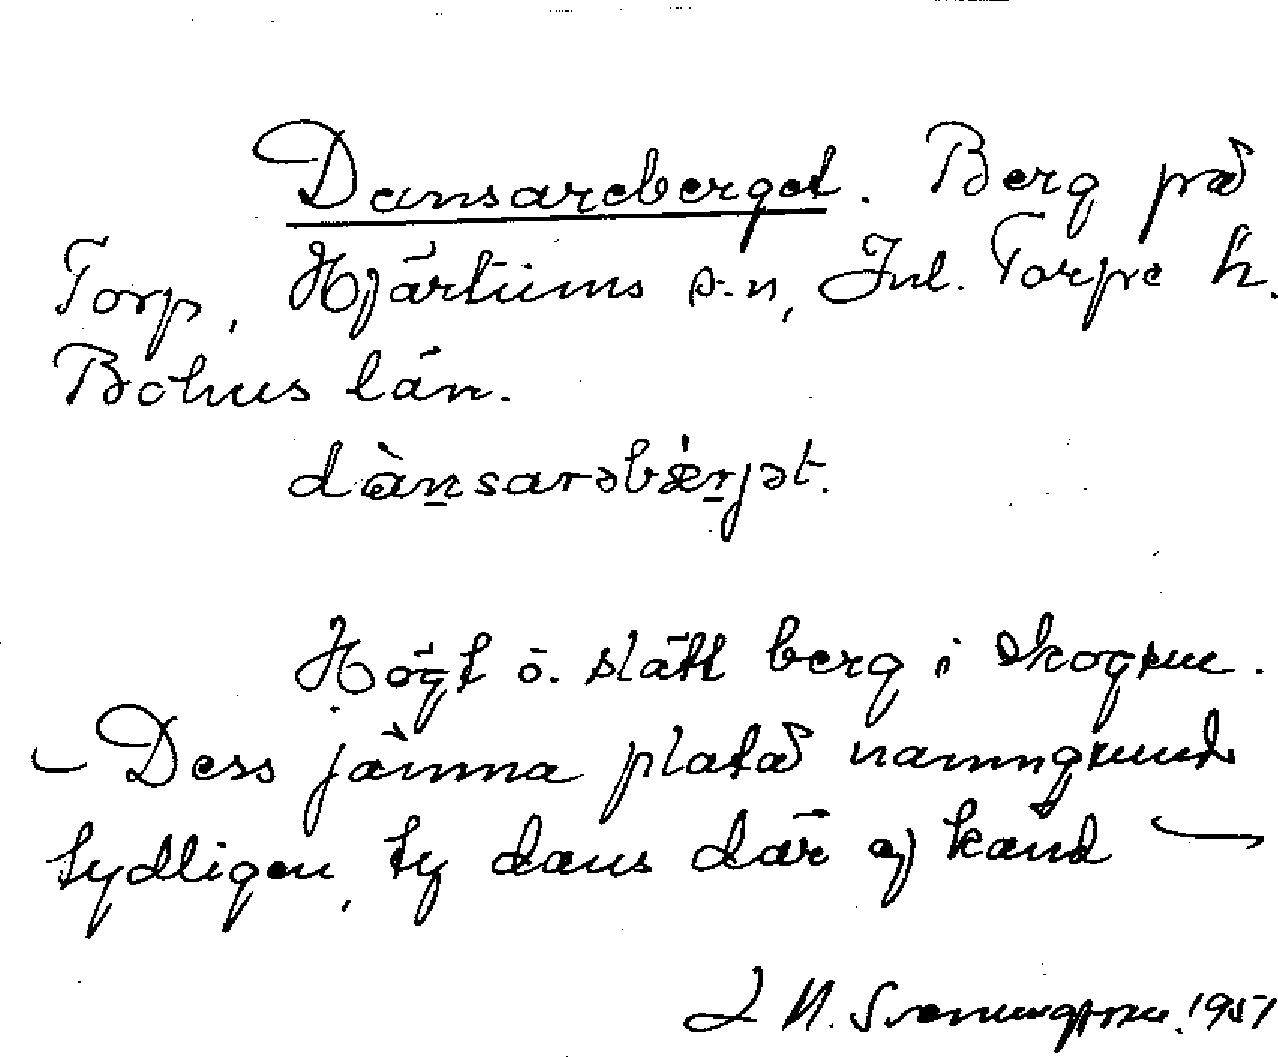 Dansareberget. Berg på
Torp, Hjärtums s:n, Inl. Torpe h.
Bohus län.
dàn̲sarəbær̲jət.
Högt o. slätt berg i skogen.
– Dess jämna platå namngrund
tydligen, ty dans där ej känd –
J N. Svenungsson. 1951